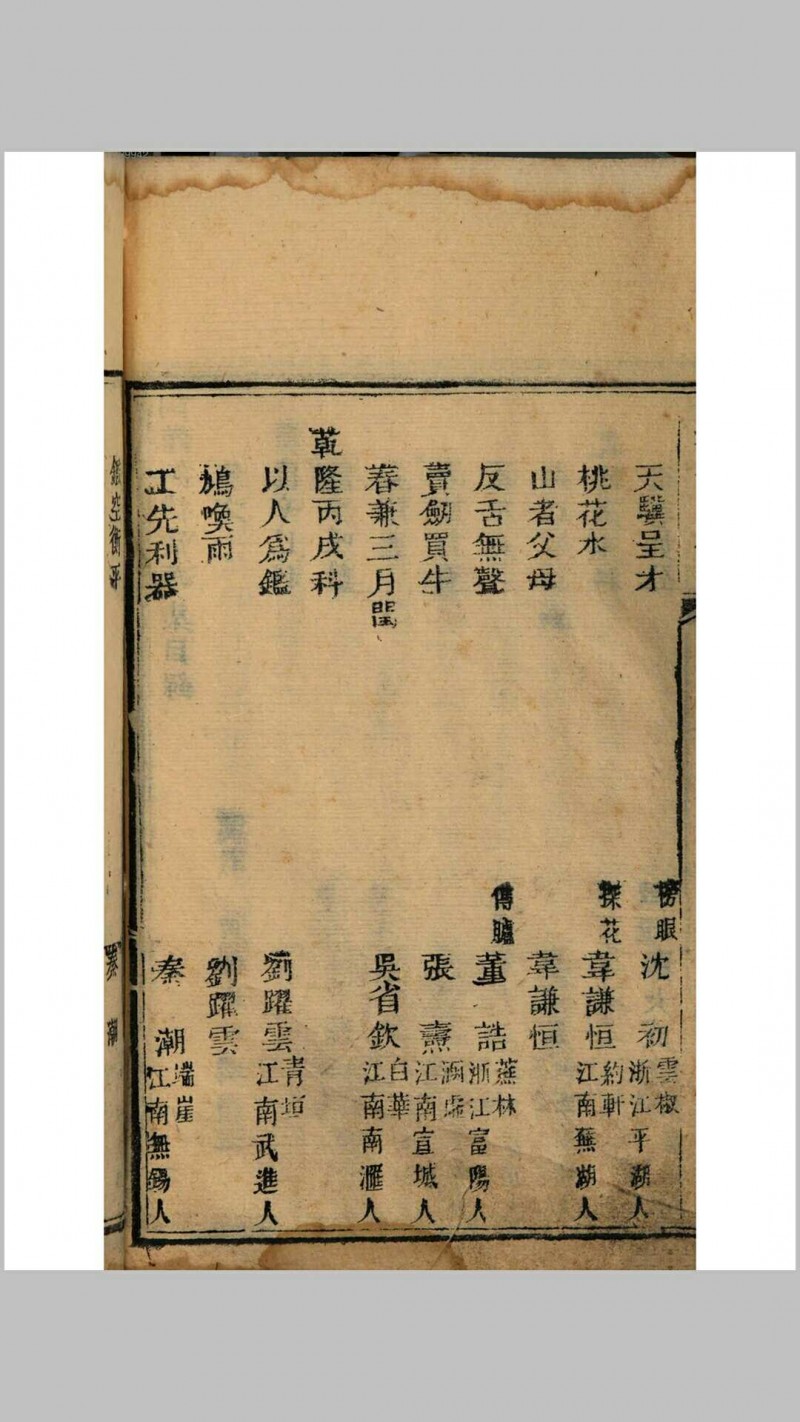 天驥呈才 榜眼 沈初 雲椒 浙江平湖人
桃花水 探花 韋謙恒 約軒 江南蕪湖人
山者父母 韋謙恒
反舌無聲 傳臚 董誥 蔗林 浙江富陽人
賣劒買牛 張燾 涵虛 江南宣城人
春兼三月閏 吳省欽 白華 江南南滙人
乾隆丙戌科
以人爲鑑 劉躍雲 青垣 江南武進人
鳩喚雨 劉躍雲
工先利器 秦潮 端崖 江南無錫人
鑑空衡平 秦潮